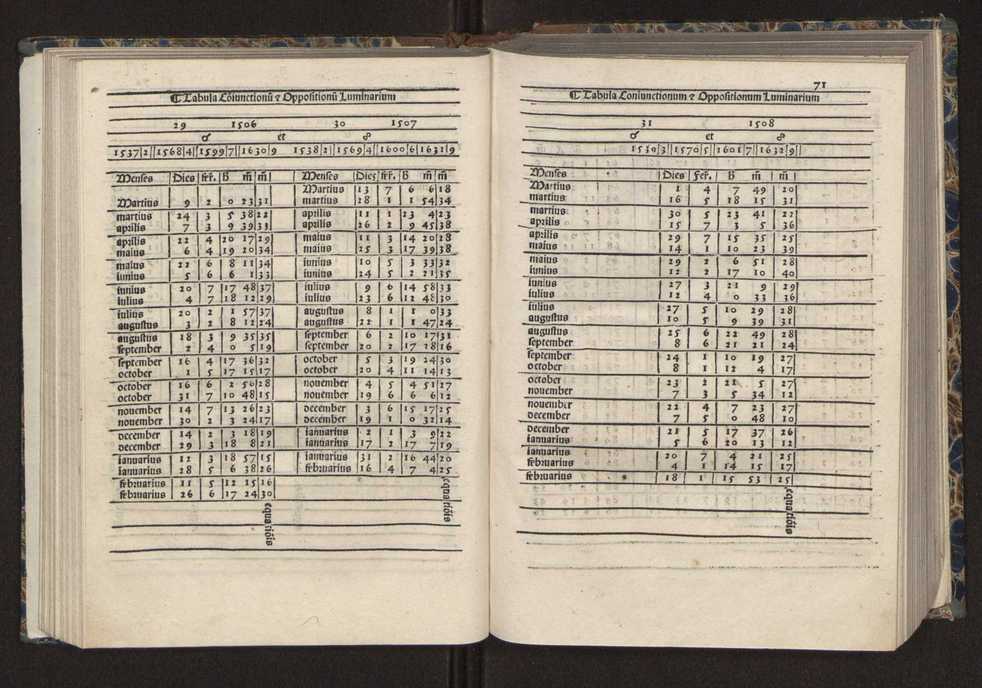 Tabula Cõiunctionũ ⁊ Oppositionũ Luminarium
29 1506 30 1507
☌ et ☍
1537 2 1568 4 1599 7 1630 9 1538 2 1569 4 1600 6 1631 9
Menses Dies fer. B m̃ m̃ Menses Dies fer. B m̃ m̃
Martius 13 7 6 6 18
Martius 9 2 0 23 31 martius 28 1 1 54 34
martius 24 3 5 38 22 aprilis 11 1 23 4 23
aprilis 7 3 9 39 33 aprilis 26 2 9 45 38
aprilis 22 4 20 17 29 maius 11 3 14 20 28
maius 6 4 19 20 34 maius 25 3 17 39 38
maius 22 6 8 11 34 iunius 10 5 3 33 32
iunius 5 6 6 1 33 iunius 24 5 2 21 35
iunius 20 7 17 48 37 iulius 9 6 14 58 33
iulius 4 7 18 12 29 iulius 23 6 12 48 30
iulius 20 2 1 57 37 augustus 8 1 1 0 33
augustus 3 2 8 12 24 augustus 22 1 1 47 24
augustus 18 3 9 35 35 september 6 2 10 17 31
september 2 4 0 5 19 september 20 2 17 28 16
september 16 4 17 36 32 october 5 3 19 24 30
october 1 5 17 15 17 october 20 4 11 14 13
october 16 6 2 56 28 nouember 4 5 4 51 27
october 31 7 10 48 15 nouember 19 6 6 6 12
nouember 14 7 13 26 23 december 3 6 15 17 25
nouember 30 2 3 24 17 december 19 1 0 32 14
december 14 2 3 18 19 ianuarius 2 1 3 9 22
december 29 3 18 8 21 ianuarius 17 2 17 7 19
ianuarius 12 3 18 57 15 ianuarius 31 2 16 44 20
ianuarius 28 5 6 38 26 februarius 16 4 7 4 25
februarius 11 5 12 15 16
februarius 26 6 17 24 30
equatiõis
equatiõis
71
Tabula Coniunctionum ⁊ Oppositionum Luminarium
31 1508
☌ et ☍
1539 3 1570 5 1601 7 1632 9
Menses Dies Fer. B m̃ m̃
Martius 1 4 7 49 20
martius 16 5 18 15 31
martius 30 5 23 41 22
aprilis 15 7 3 5 36
aprilis 29 7 15 35 25
maius 14 1 10 23 39
maius 29 2 6 51 28
iunius 12 2 17 10 40
iunius 27 3 21 9 29
iulius 12 4 0 33 36
iulius 27 5 10 29 28
augustus 10 5 9 39 31
augustus 25 6 22 49 28
september 8 6 21 21 24
september 24 1 10 19 27
october 8 1 12 4 17
october 23 2 21 5 27
nouember 7 3 5 34 12
nouember 22 4 7 23 27
december 7 5 0 48 10
december 21 5 17 37 26
ianuarius 5 6 20 13 12
ianuarius 20 7 4 21 25
februarius 4 1 14 15 17
februarius 18 1 15 53 25
equatiõis